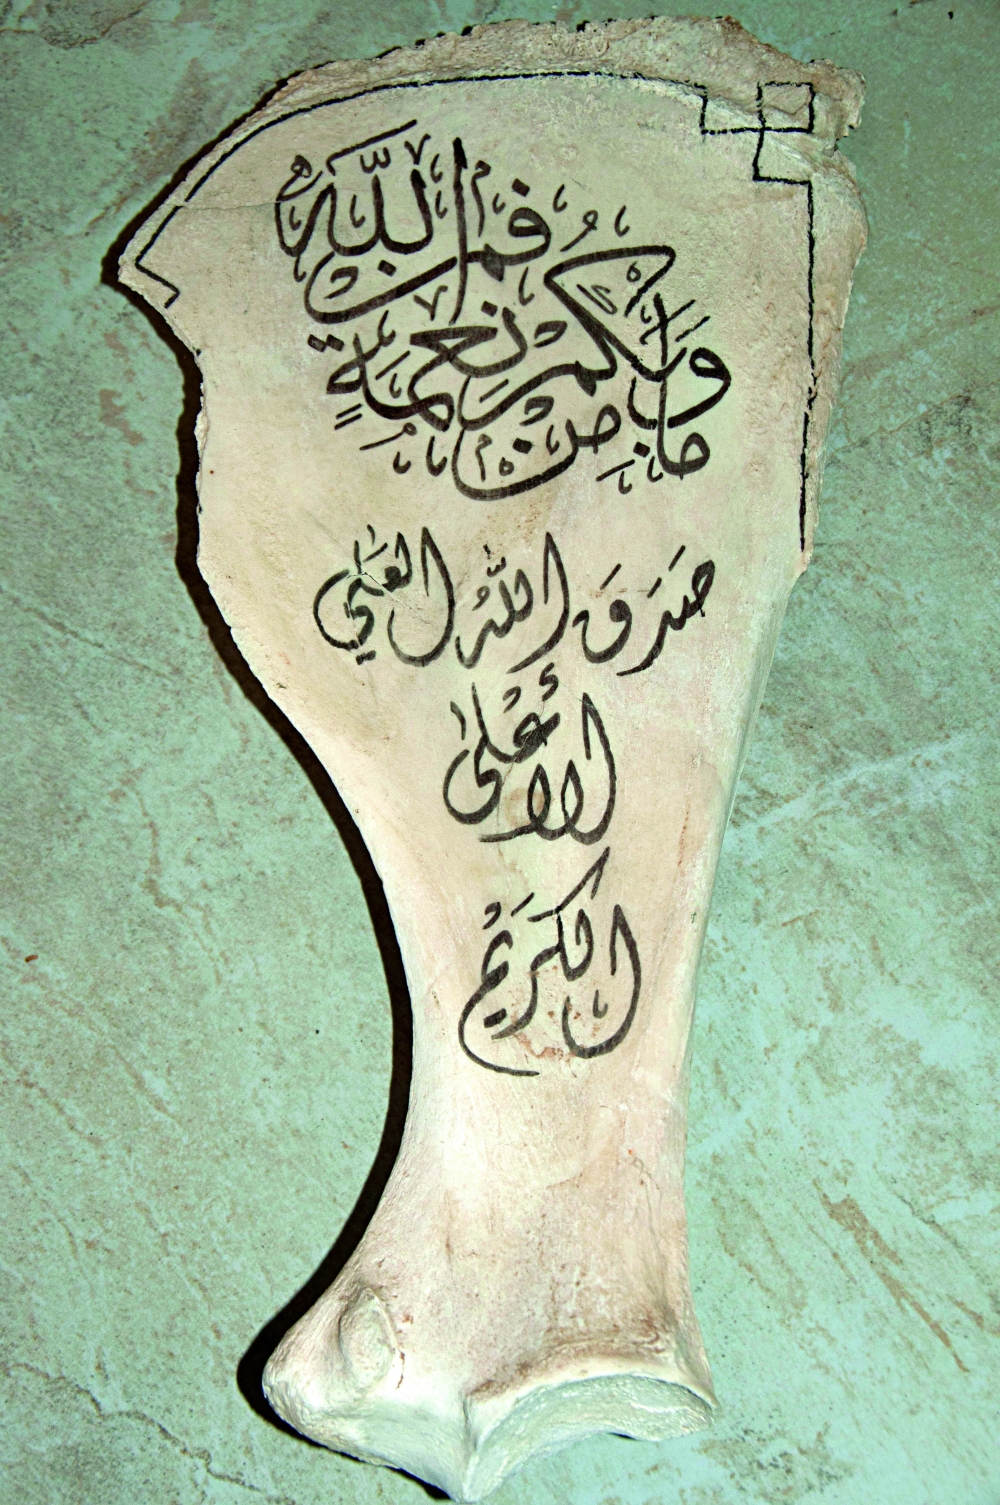 وَمَا بِكُمْ مِنْ نِعْمَةٍ فَمِنَ اللَّهِ
صَدَقَ اللّٰهُ العَلي
الأَعْلى
الكَرِيْم